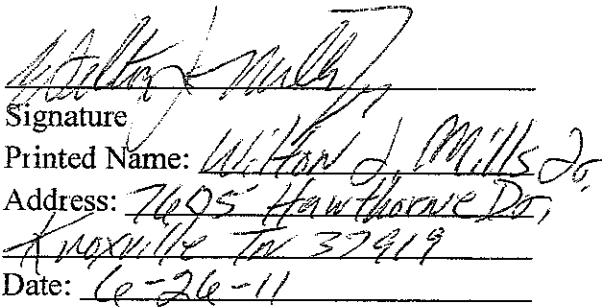 Signature
Printed Name: Wilton J. Mills Jr.
Address: 7605 Hawthorne Dr,
Knoxville TN 37919
Date: 6-26-11